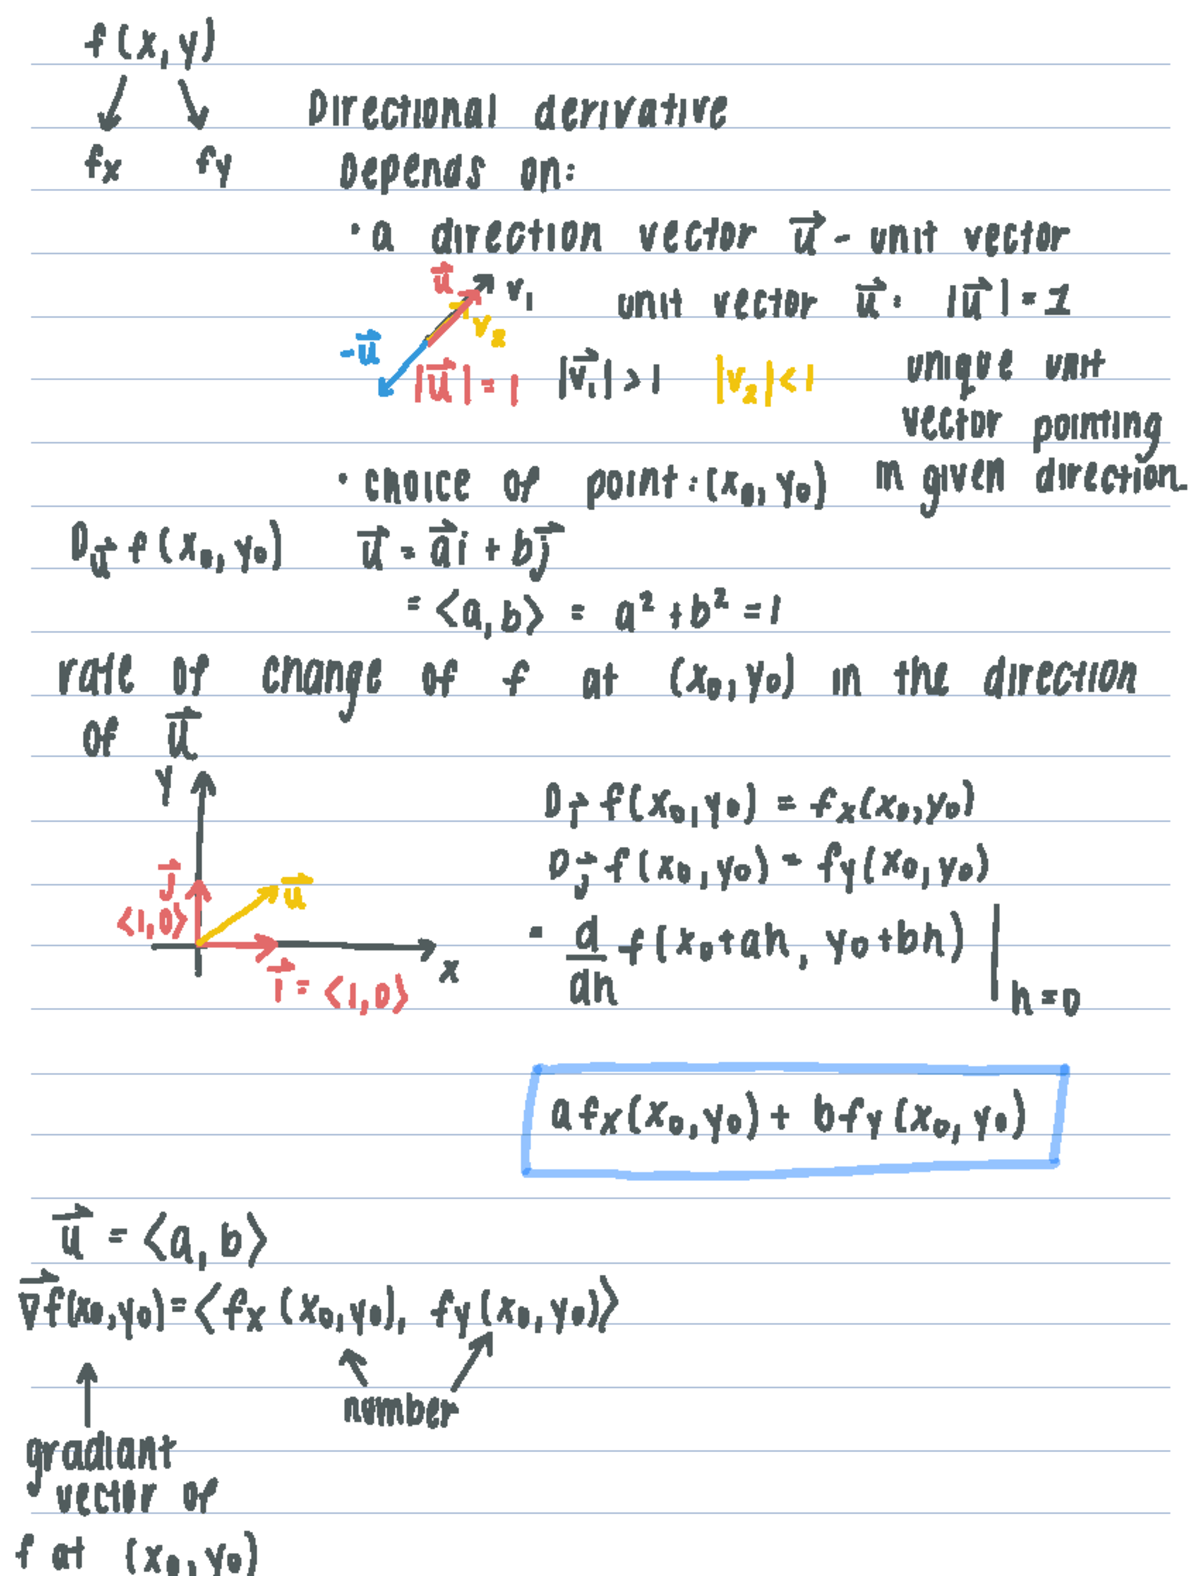 f(x, y)
Directional derivative
fx fy
Depends on:
· a direction vector u⃗ - unit vector
u⃗ v₁ unit vector u⃗: |u⃗| = 1
v₂
-u⃗
|u⃗| = 1 |v⃗₁| > 1 |v₂| < 1 unique unit
vector pointing
· choice of point: (x₀, y₀) in given direction.
D_u⃗ f(x₀, y₀) u⃗ = a⃗i + bj⃗
= ⟨a, b⟩ = a² + b² = 1
rate of change of f at (x₀, y₀) in the direction
of u⃗
y
D_i⃗ f(x₀, y₀) = fx(x₀, y₀)
D_j⃗ f(x₀, y₀) = fy(x₀, y₀)
j⃗ u⃗
⟨1, 0⟩
= d/dh f(x₀+ah, y₀+bh) |h=0
x
i⃗ = ⟨1, 0⟩
afx(x₀, y₀) + bfy(x₀, y₀)
u⃗ = ⟨a, b⟩
∇⃗f(x₀, y₀) = ⟨fx(x₀, y₀), fy(x₀, y₀)⟩
number
gradiant
vector of
f at (x₀, y₀)